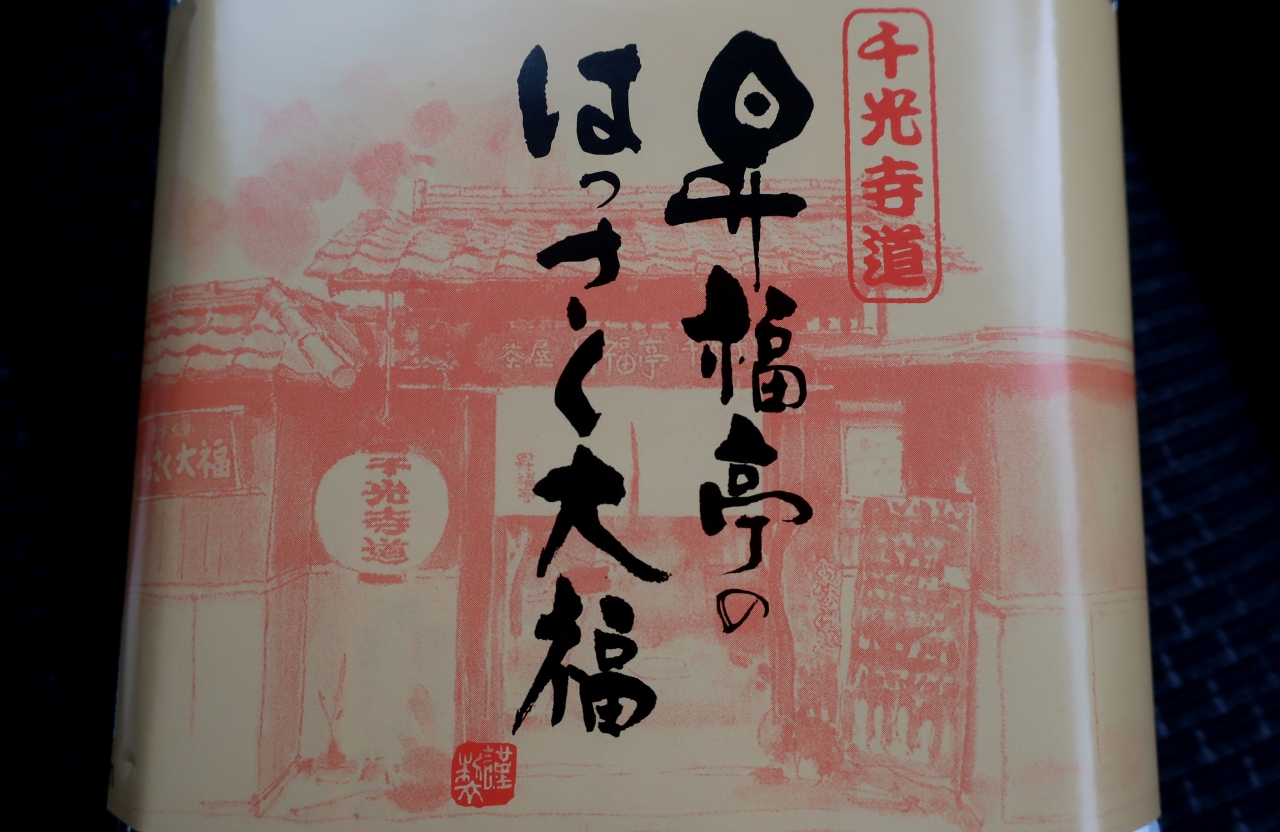 千光寺道
昇福亭の
はっさく大福
謹製
茶屋 福亭
さく大福
千光寺道
昇福亭